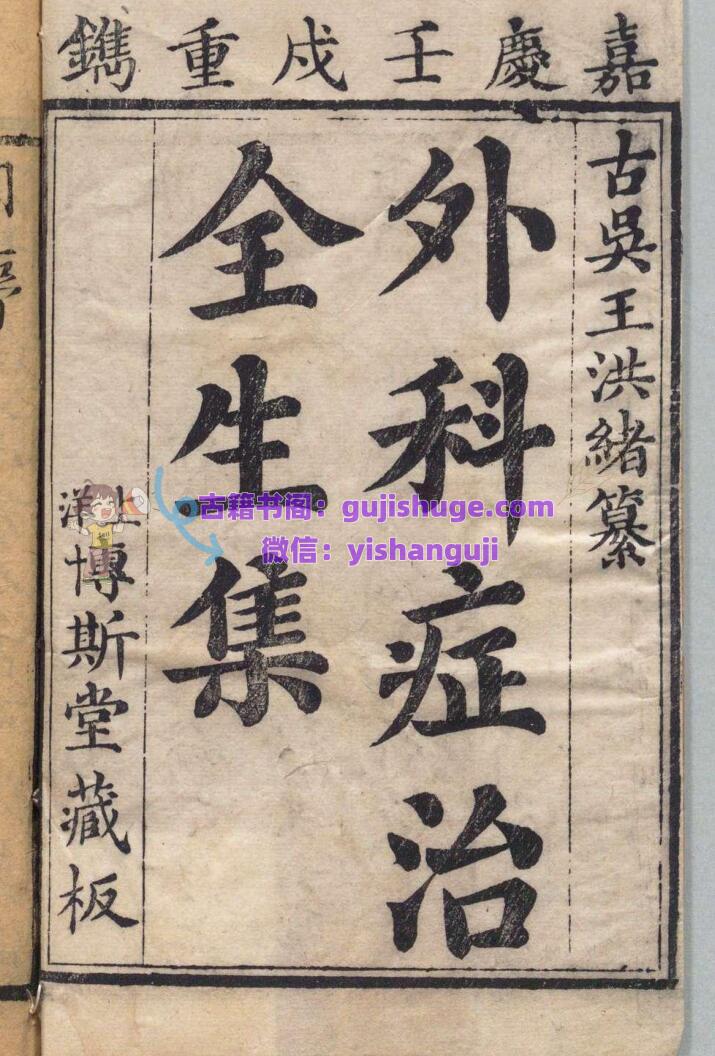 嘉慶壬戌重鐫
古吳王洪緒纂
外科症治
全生集
上洋博斯堂藏板
古籍书阁：gujishuge.com
微信：yishanguji